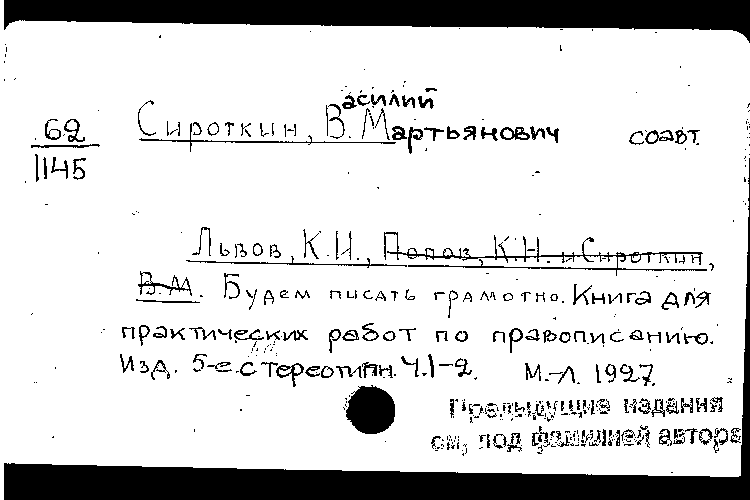 62
1145
Сироткин, Василий Мартьянович соавт.
Львов, К.И., Попов, К.Н. и Сироткин,
В.М. Будем писать грамотно. Книга для
практических работ по правописанию.
Изд. 5-е стереотипн. Ч.1-2. М.-Л. 1927.
Предыдущие издания
см, под фамилией автора